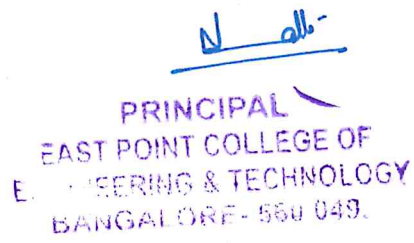 PRINCIPAL
EAST POINT COLLEGE OF
E. EERING & TECHNOLOGY
BANGALORE - 560 049.